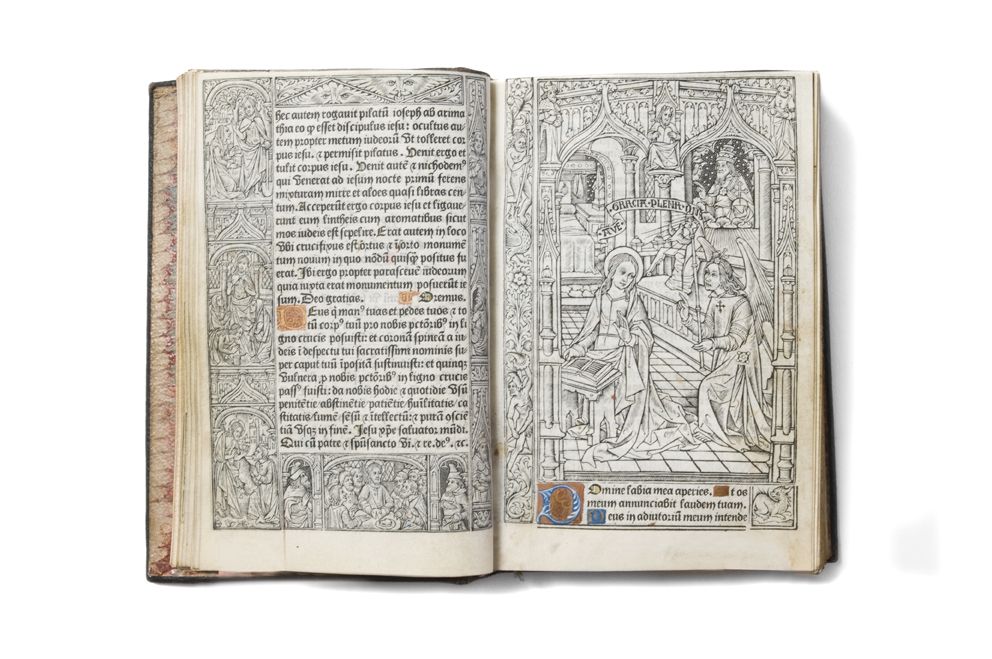 hec autem rogauit pilatū ioseph ab arima
thia eo ꝙ esset discipulus iesu: ocultus au
tem propter metum iudeorū Vt tolleret cor
pus iesu. ⁊ permisit pilatus. Venit ergo et
tulit corpus iesu. Venit autē ⁊ nichodemꝰ
qui Venerat ad iesum nocte primū ferens
mixturam mirre et aloes quasi libras cen
tum. Acceperūt ergo corpus iesu et ligaue
runt eum lintheis cum aromatibus sicut
mos iudeis est sepelire. Erat autem in loco
Vbi crucifixus est ortus ⁊ ī orto monumē
tum nouum in quo nōdū quisꝙ positus fu
erat. Ibi ergo propter parasceuē iudeorum
quia iuxta erat monumentum posuerūt ie
sum. Deo gratias. Oremus.
Eus q̄ manꝰ tuas et pedes tuos ⁊ to
tū corpꝰ tuū pro nobis pctōribꝰ in li
gno crucis posuisti: et coronā spineā a iu
deis ī despectū tui sacratissimi nominis su
per caput tuū īpositā sustinuisti: et quinqꝫ
Vulnera ꝓ nobis pctōribꝰ in ligno crucis
passꝰ fuisti: da nobis hodie ⁊ quotidie Vsū
penitētie abstinētie patiētie hūilitatis ca
stitatis lumē sēsū ⁊ ītellectū: ⁊ purā osciē
tiā Vsqꝫ in finē. Jesu xp̄e saluator mūdi.
Qui cū patre ⁊ sp̄usancto Vi. ⁊ re. deꝰ. ⁊c.
AVE GRACIA PLENA DNS
Domine labia mea aperies. Et os
meum annunciabit laudem tuam.
Deus in adiutoriū meum intende